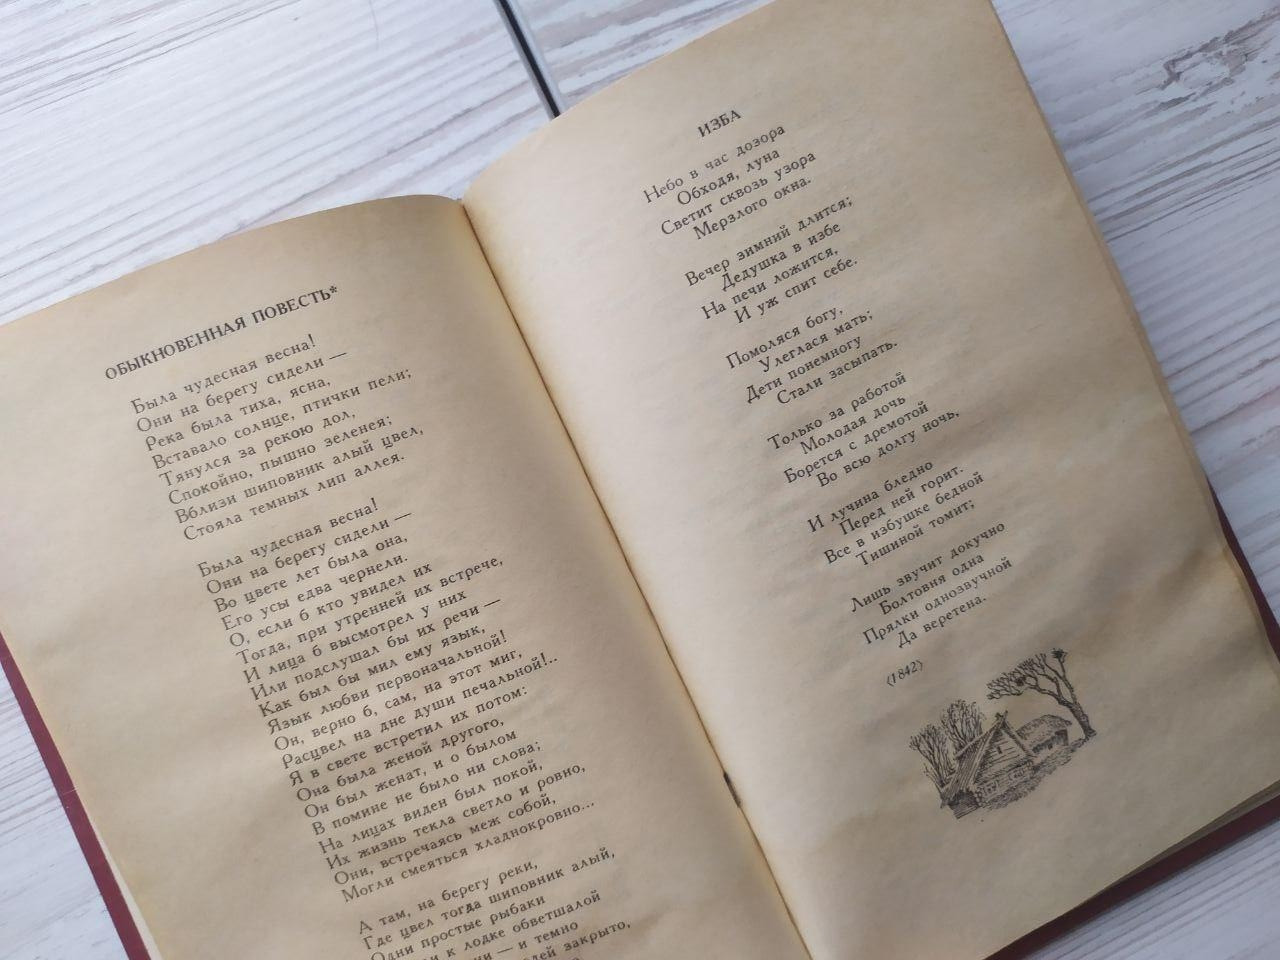 ОБЫКНОВЕННАЯ ПОВЕСТЬ*
Была чудесная весна!
Они на берегу сидели —
Река была тиха, ясна,
Вставало солнце, птички пели;
Тянулся за рекою дол,
Спокойно, пышно зеленея;
Вблизи шиповник алый цвел,
Стояла темных лип аллея.
Была чудесная весна!
Они на берегу сидели —
Во цвете лет была она,
Его усы едва чернели.
О, если б кто увидел их
Тогда, при утренней их встрече,
И лица б высмотрел у них
Или подслушал бы их речи —
Как был бы мил ему язык,
Язык любви первоначальной!
Он, верно б, сам, на этот миг,
Расцвел на дне души печальной!..
Я в свете встретил их потом:
Она была женой другого,
Он был женат, и о былом
В помине не было ни слова;
На лицах виден был покой,
Их жизнь текла светло и ровно,
Они, встречаясь меж собой,
Могли смеяться хладнокровно...
А там, на берегу реки,
Где цвел тогда шиповник алый,
Одни простые рыбаки
к лодке обветшалой
— и темно
закрыто,
ИЗБА
Небо в час дозора
Обходя, луна
Светит сквозь узора
Мерзлого окна.
Вечер зимний длится;
Дедушка в избе
На печи ложится,
И уж спит себе.
Помоляся богу,
Улеглася мать;
Дети понемногу
Стали засыпать.
Только за работой
Молодая дочь
Борется с дремотой
Во всю долгу ночь,
И лучина бледно
Перед ней горит.
Все в избушке бедной
Тишиной томит;
Лишь звучит докучно
Болтовня одна
Прялки однозвучной
Да веретена.
⟨1842⟩